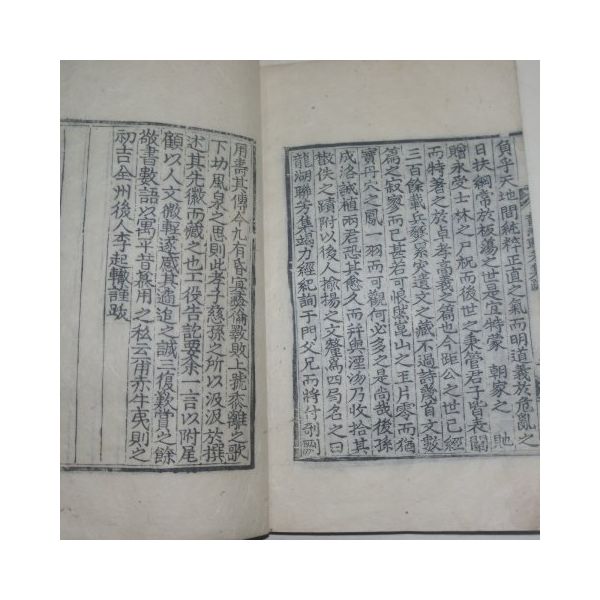 負乎天地間純粹正直之氣而明道義於危亂之
日扶綱常於板蕩之世是宜特蒙 朝家之 貤
贈永受士林之尸祝而後世之秉管君子皆表闡
而特著之於卓孝高義之篇也今距公之世已經
三百餘載兵燹累灾遺文之藏不過詩幾首文數
篇之寂寥而已甚若可恨然崑山之玉片零而猶
寶丹穴之鳳一羽而可觀何必多之是尚哉後孫
成洛誠植兩君恐其愈久而幷與湮沕乃收拾其
散佚之蹟附以後人揄揚之文釐爲四局名之曰
龍湖聯芳集竭力經紀詢于門父兄而將付剞劂
用壽其傳今九有昏
倫斁敗上號黍離之歌
下切風泉之思則此孝子慈孫之所以汲汲於撰
述其先徽而藏之也工役告訖要余一言以附尾
顧以人文微輕遂感其遹追之誠三復歎賞之餘
敬書數語以寓平昔慕用之私云甫赤牛夷則之
初吉全州後人李起 謹跋